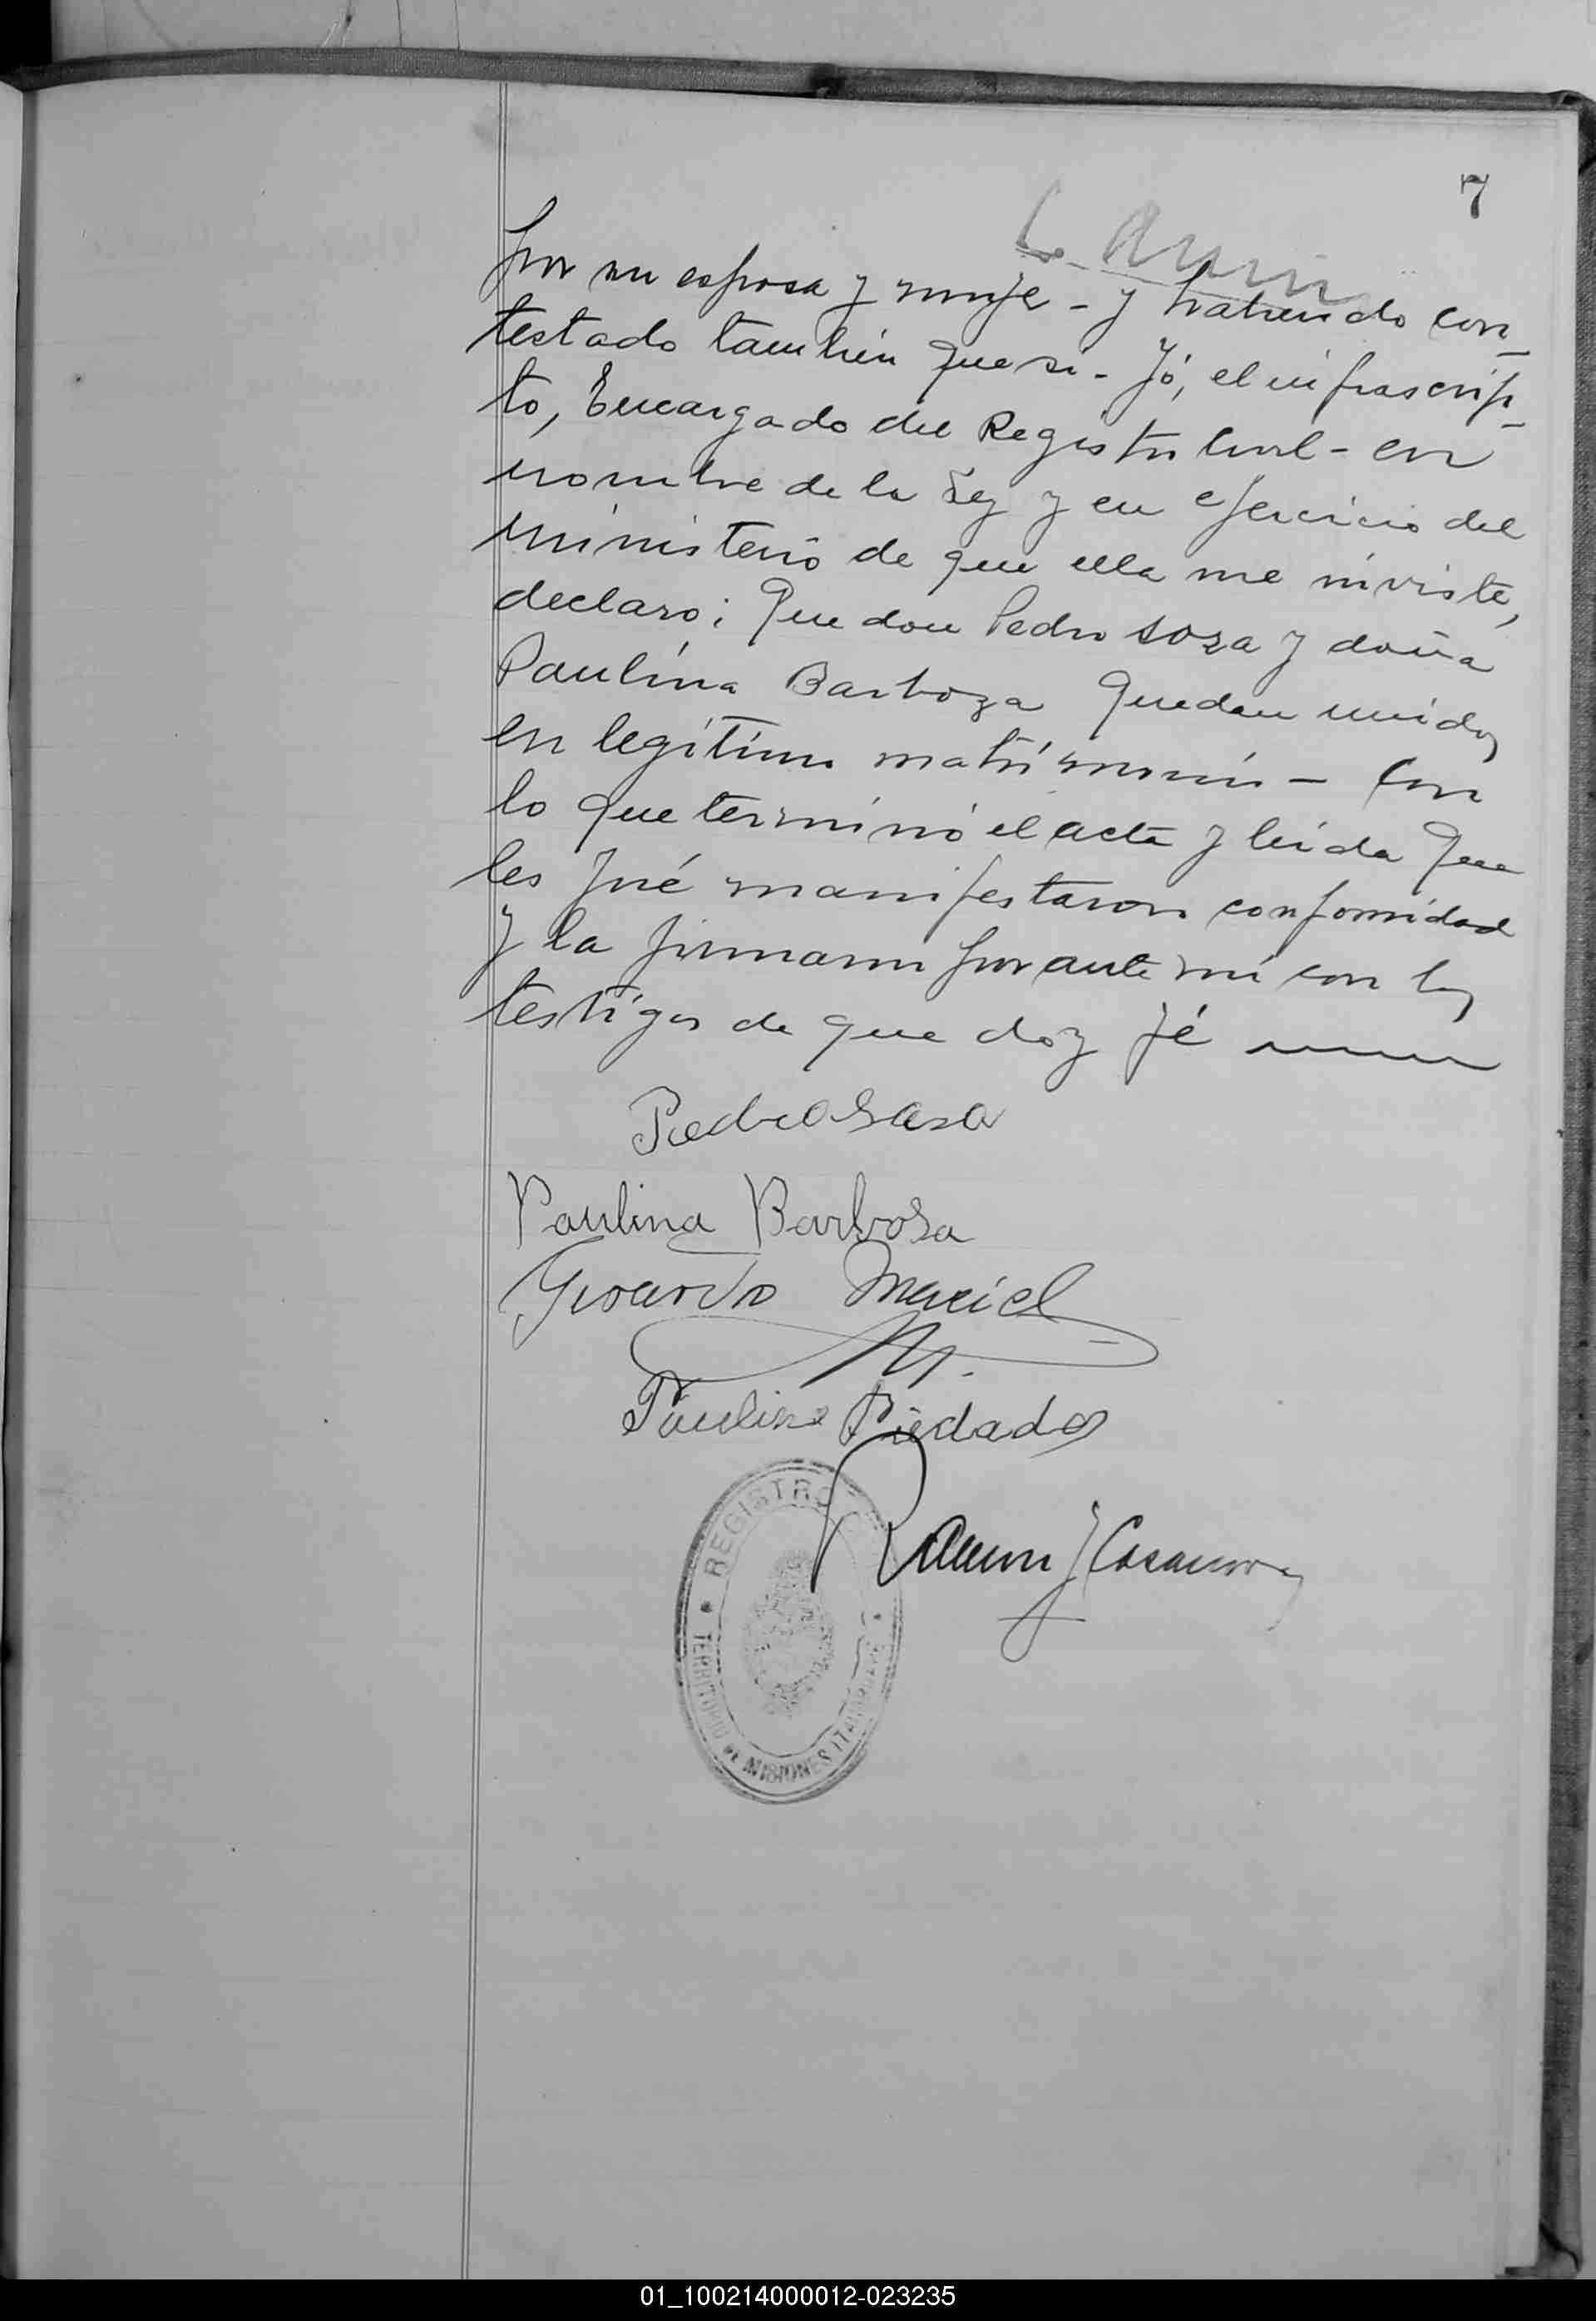 7
por su esposa y mujer - y habiendo con_
testado también que si - Yó, el infrascrip_
to, Encargado del Registro Civil - en
nombre de la Ley y en ejercicio del
ministerio de que ella me inviste,
declaro; Que don Pedro Soza y doña
Paulina Barboza quedan unidos
en legítimo matrimonio - Con
lo que terminó el acta y leida que
les fué manifestaron conformidad
y la firmaron por ante mi con los
testigos de que doy fé
Pedro Sasa
Paulina Barbosa
Gerardo Maciel
Paulino Piedada
Ramon J Casanova
REGISTRO
TERRITORIO DE MISIONES ITACARUARÉ
01_100214000012-023235